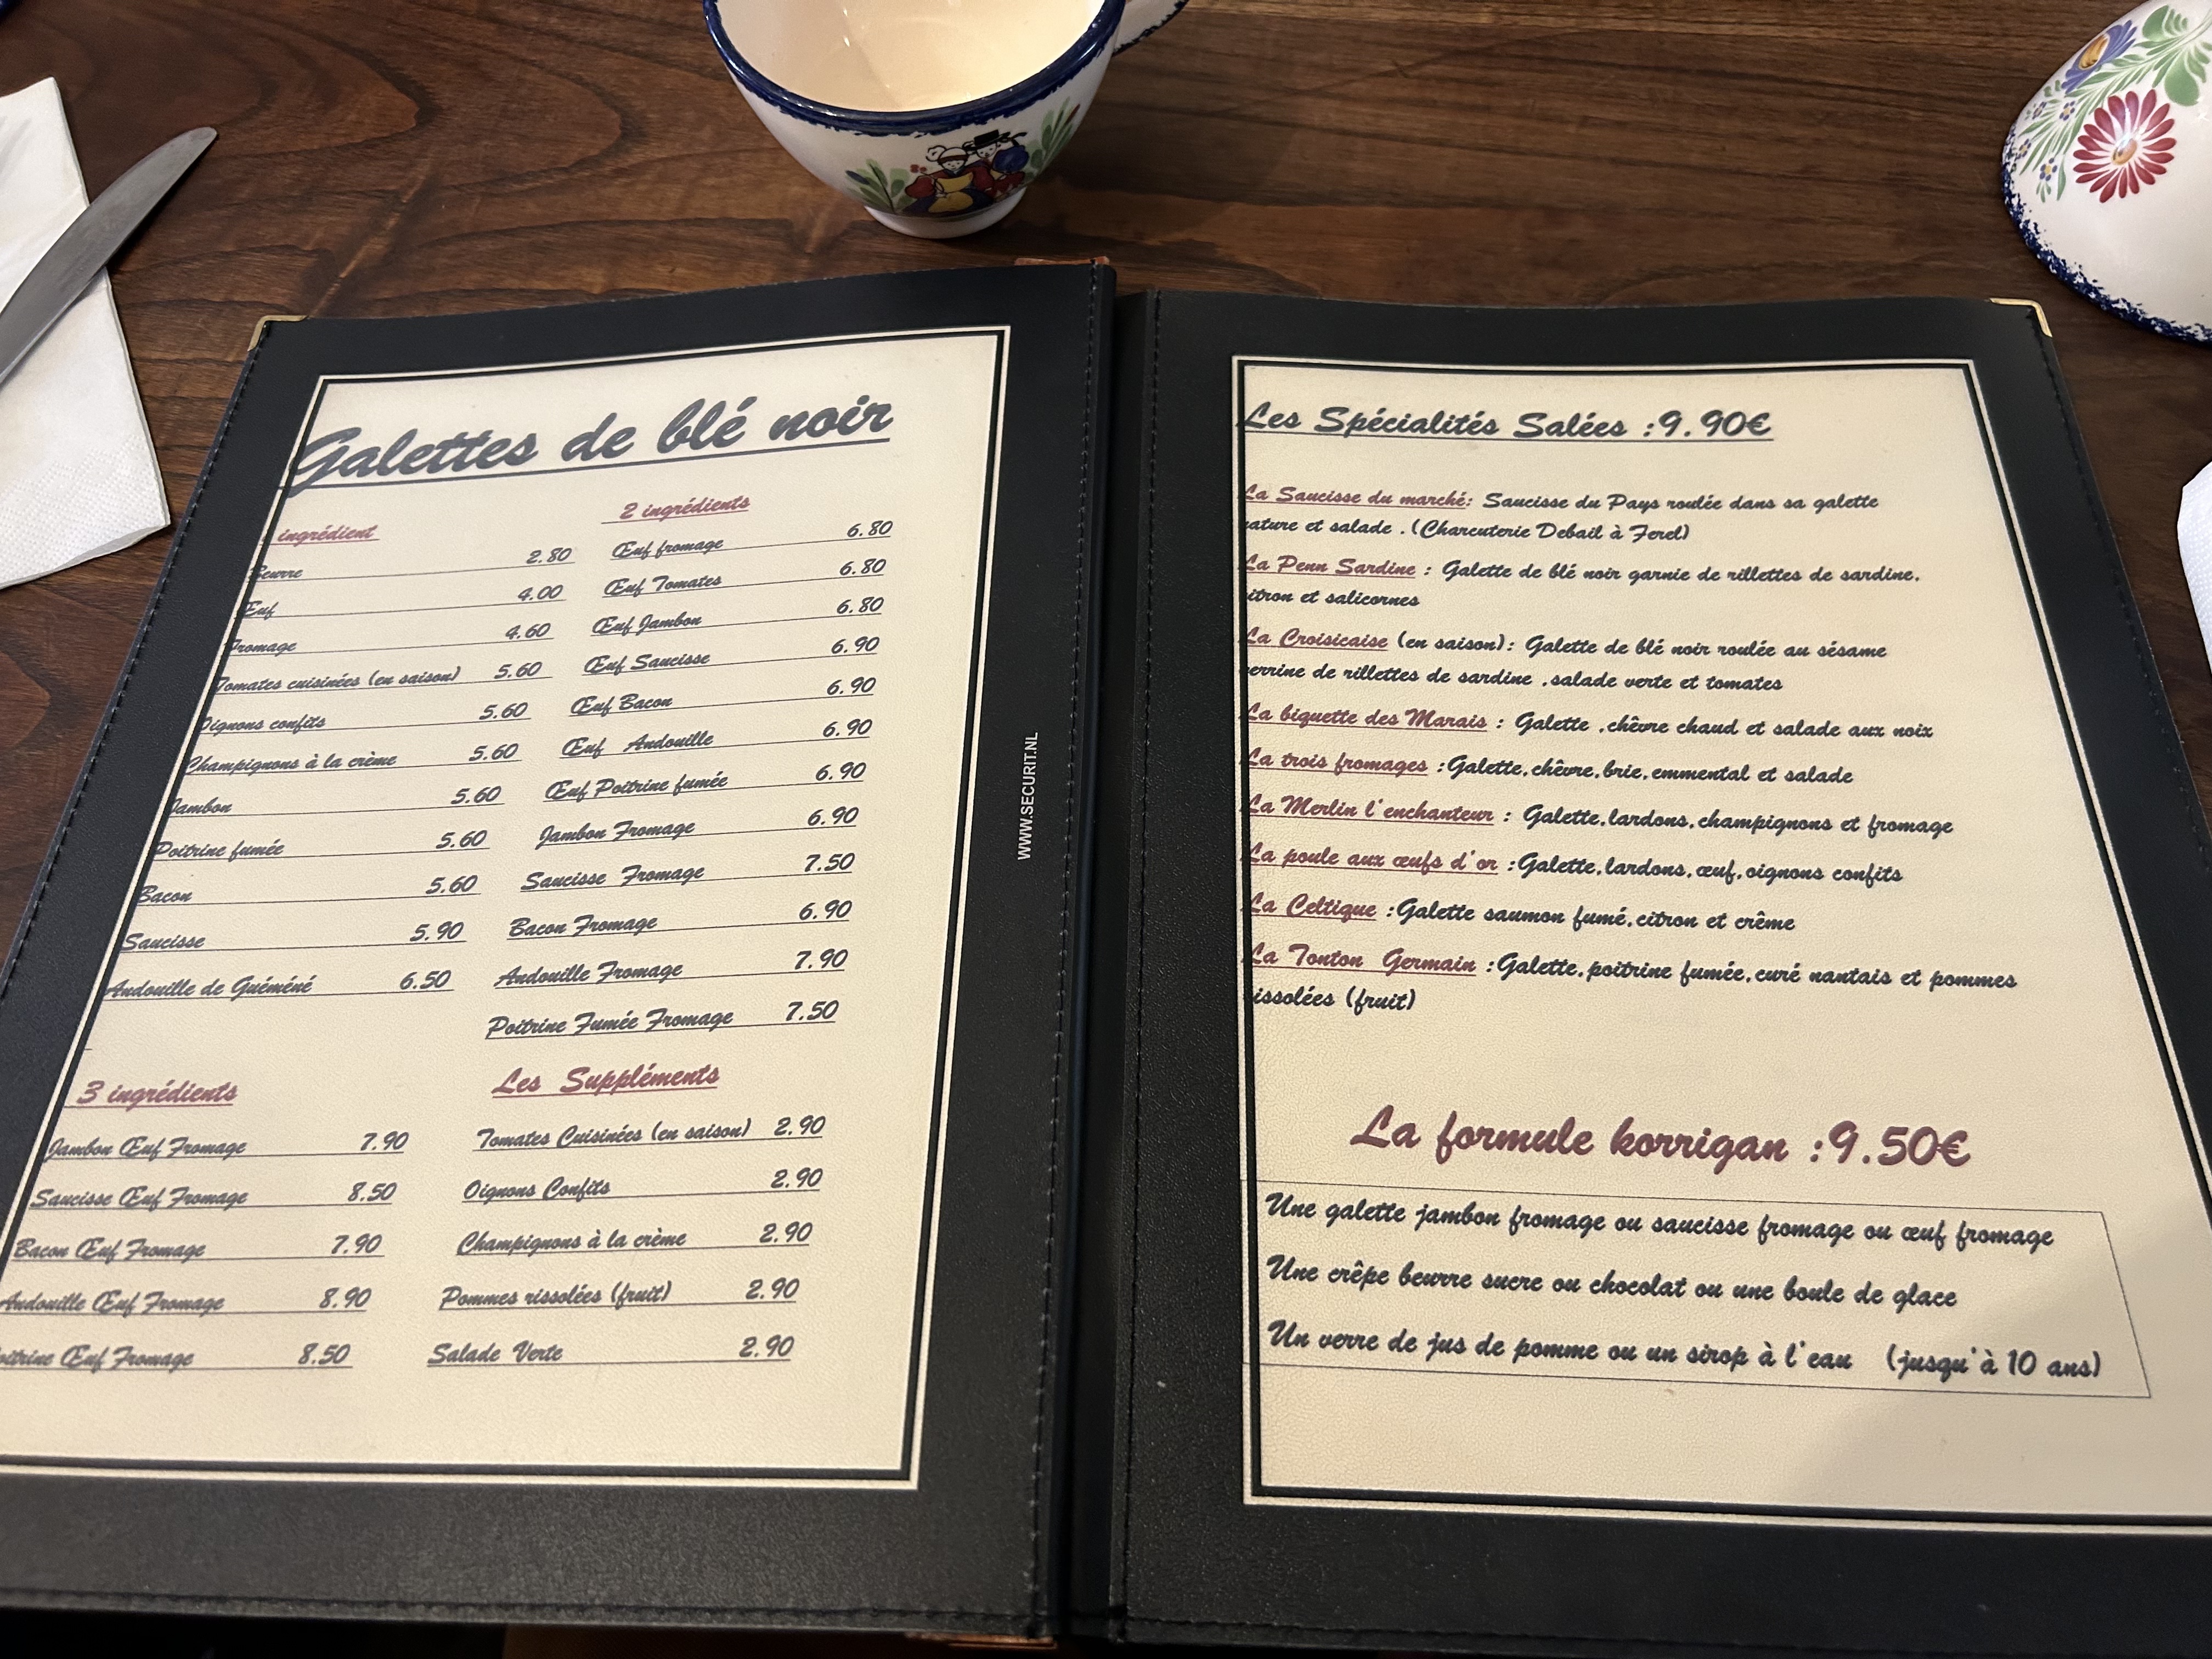 Galettes de blé noir
ingrédient
Beurre 2.80
Œuf 4.00
Fromage 4.60
Tomates cuisinées (en saison) 5.60
Oignons confits 5.60
Champignons à la crème 5.60
Jambon 5.60
Poitrine fumée 5.60
Bacon 5.60
Saucisse 5.90
Andouille de Guéméné 6.50
2 ingrédients
Œuf fromage 6.80
Œuf Tomates 6.80
Œuf Jambon 6.80
Œuf Saucisse 6.90
Œuf Bacon 6.90
Œuf Andouille 6.90
Œuf Poitrine fumée 6.90
Jambon Fromage 6.90
Saucisse Fromage 7.50
Bacon Fromage 6.90
Andouille Fromage 7.90
Poitrine Fumée Fromage 7.50
3 ingrédients
Jambon Œuf Fromage 7.90
Saucisse Œuf Fromage 8.50
Bacon Œuf Fromage 7.90
Andouille Œuf Fromage 8.90
oitrine Œuf Fromage 8.50
Les Suppléments
Tomates Cuisinées (en saison) 2.90
Oignons Confits 2.90
Champignons à la crème 2.90
Pommes rissolées (fruit) 2.90
Salade Verte 2.90
WWW.SECURIT.NL
Les Spécialités Salées :9.90€
La Saucisse du marché: Saucisse du Pays roulée dans sa galette
nature et salade .(Charcuterie Debail à Ferel)
La Penn Sardine : Galette de blé noir garnie de rillettes de sardine,
citron et salicornes
La Croisicaise (en saison): Galette de blé noir roulée au sésame
verrine de rillettes de sardine ,salade verte et tomates
La biquette des Marais : Galette ,chêvre chaud et salade aux noix
La trois fromages :Galette,chêvre,brie,emmental et salade
La Merlin l'enchanteur : Galette,lardons,champignons et fromage
La poule aux œufs d'or :Galette,lardons,œuf,oignons confits
La Celtique :Galette saumon fumé,citron et crême
La Tonton Germain :Galette,poitrine fumée,curé nantais et pommes
rissolées (fruit)
La formule korrigan :9.50€
Une galette jambon fromage ou saucisse fromage ou œuf fromage
Une crêpe beurre sucre ou chocolat ou une boule de glace
Un verre de jus de pomme ou un sirop à l'eau (jusqu'à 10 ans)